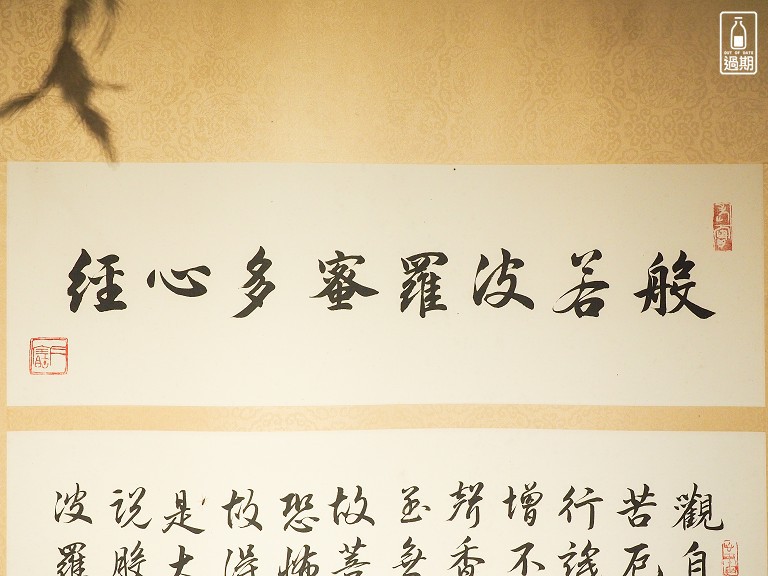 般若波羅蜜多心經
觀自
苦厄
行識
增不
聲香
至無
故菩
恐怖
故得
是大
說般
波羅
OUT OF DATE
過期